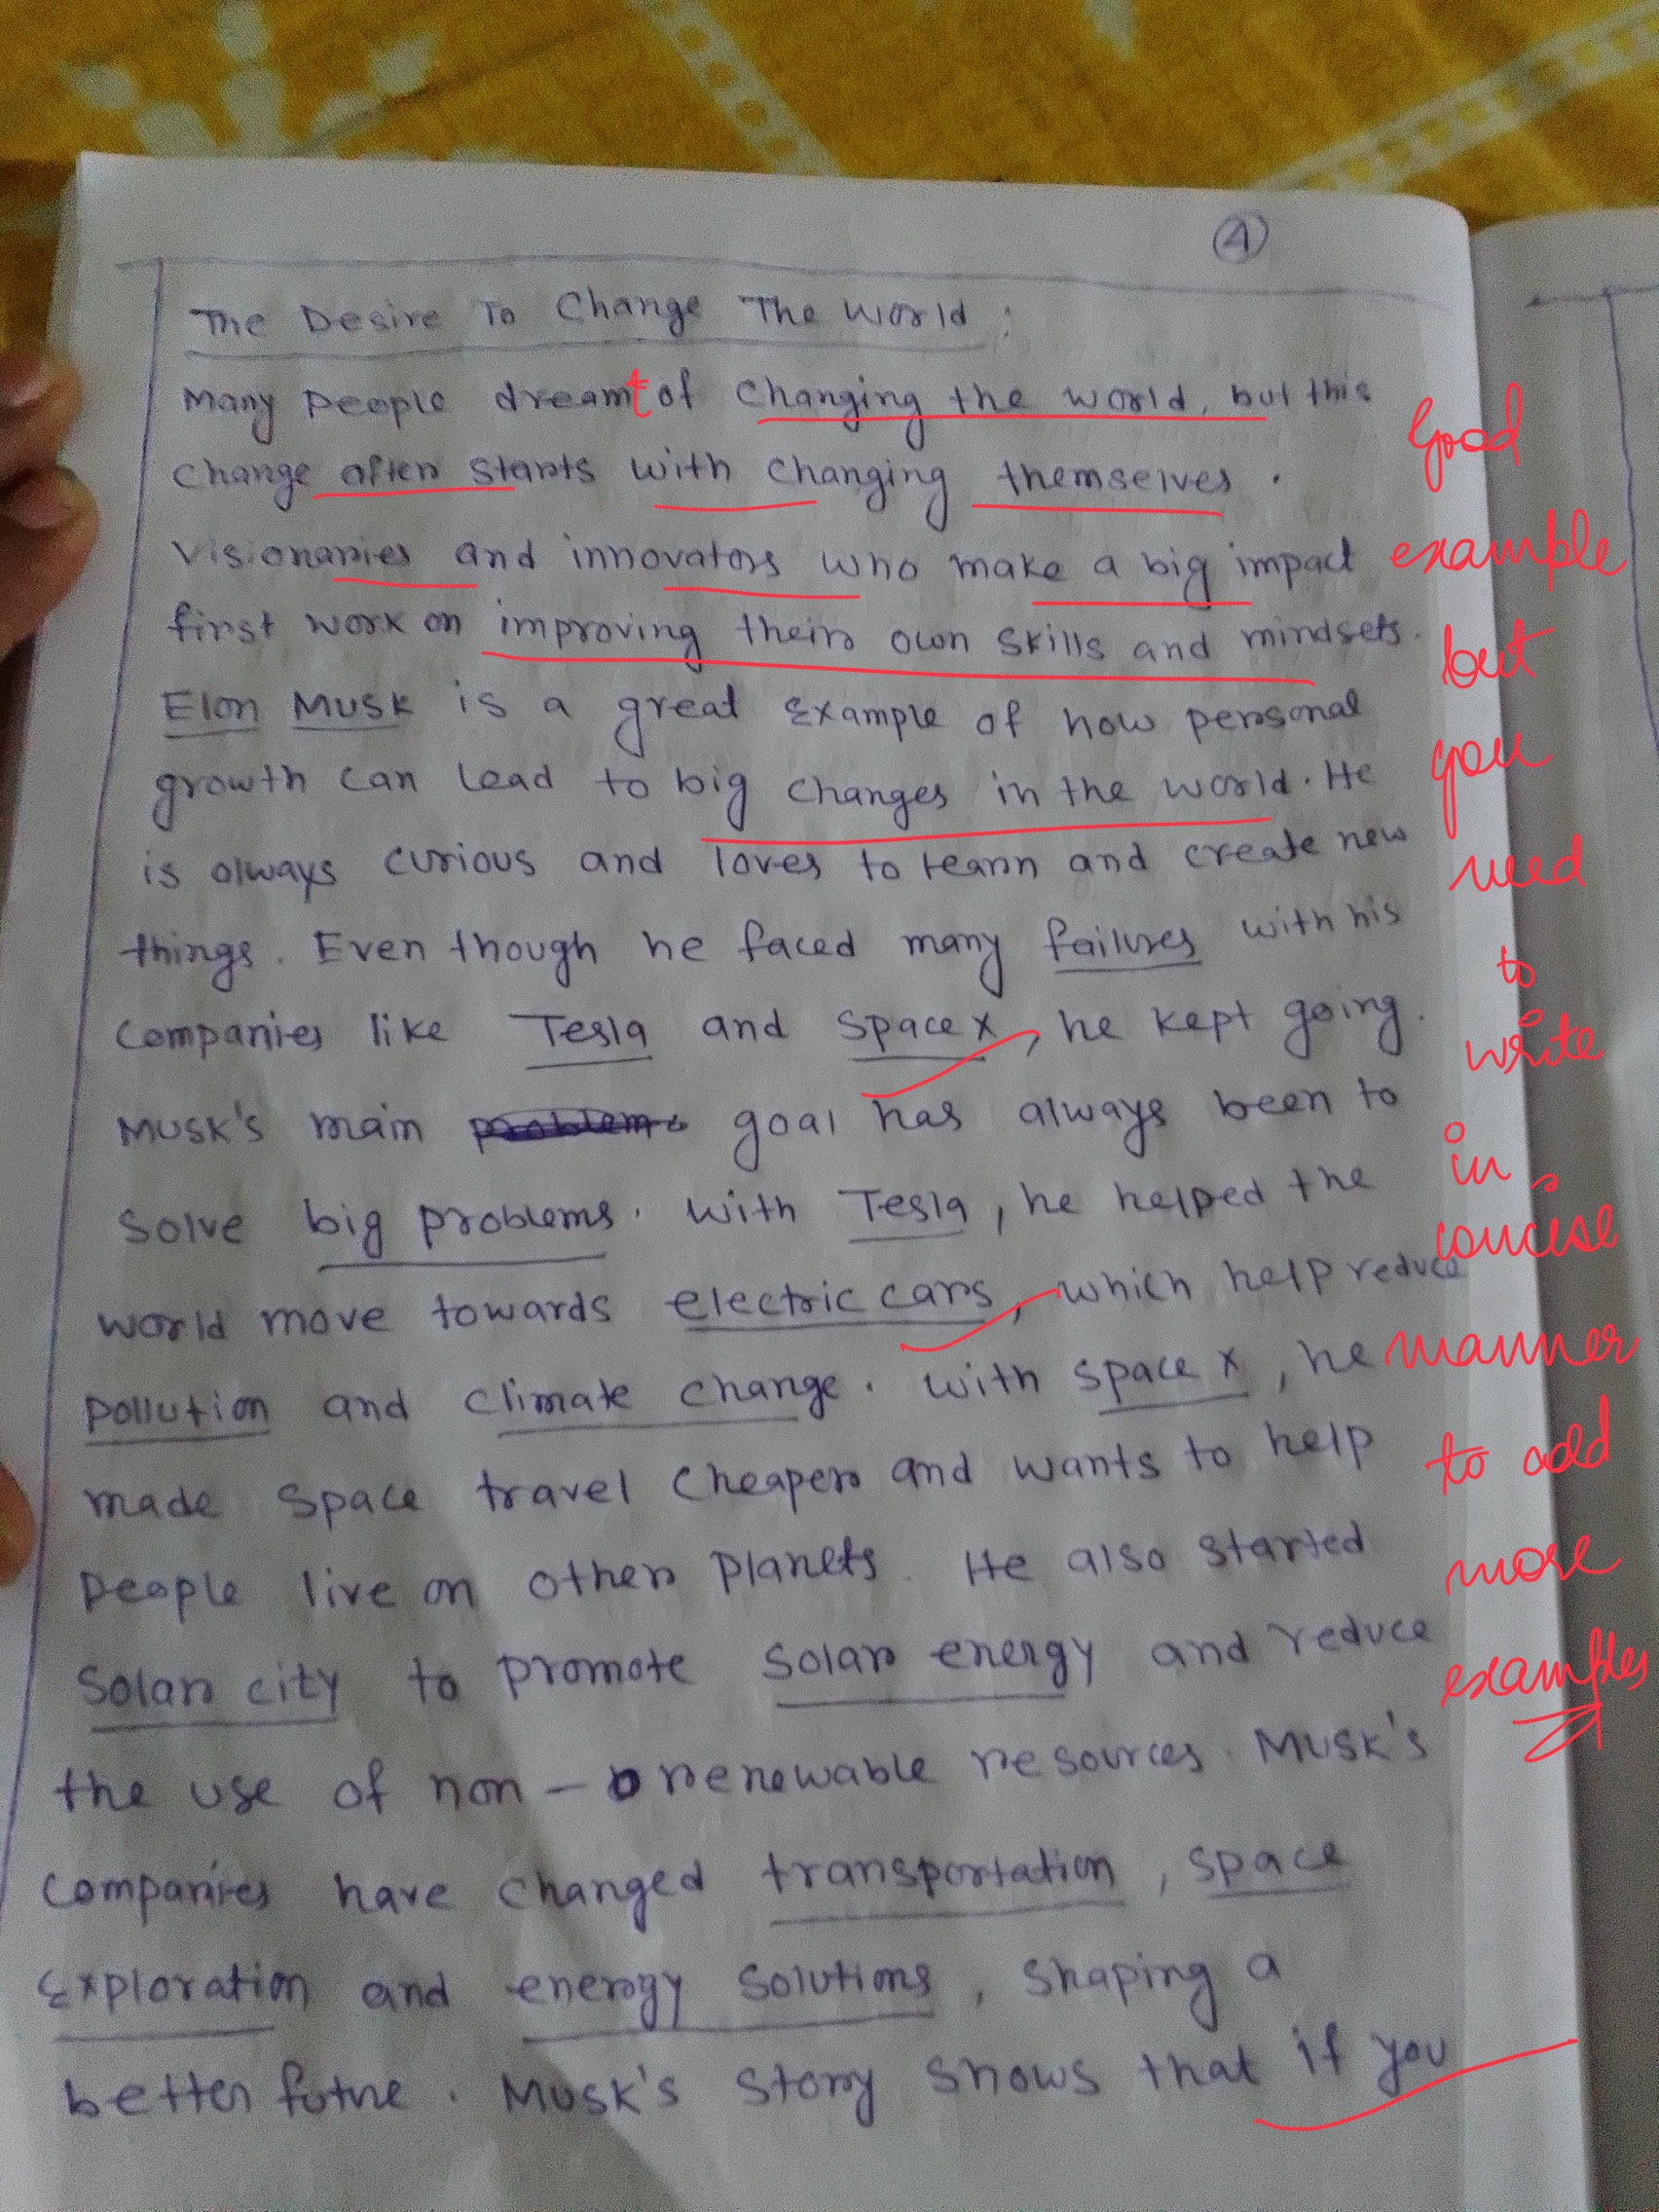 4
The Desire To Change The World :
Many People dreamt of Changing the world, but this
Change often starts with changing themselves .
Visionaries and innovators who make a big impact
first work on improving their own skills and mindsets.
Elon Musk is a great Example of how personal
growth can lead to big changes in the world. He
is always curious and loves to learn and create new
things. Even though he faced many failures with his
Companies like Tesla and Space X, he kept going.
Musk's main goal has always been to
Solve big problems. With Tesla, he helped the
world move towards electric cars, which help reduce
Pollution and Climate Change. With Space X, he
made Space travel Cheaper and wants to help
People live on other Planets. He also started
Solar city to promote Solar energy and reduce
the use of non-renewable resources. Musk's
Companies have changed transportation, space
Exploration and energy Solutions, shaping a
better future. Musk's story shows that if you
Good
example
but
you
need
to
write
in
concise
manner
to add
more
examples